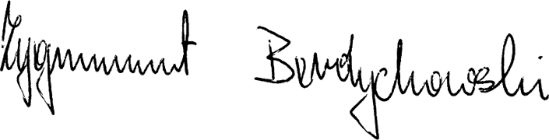 Zygmunt Berdychowski